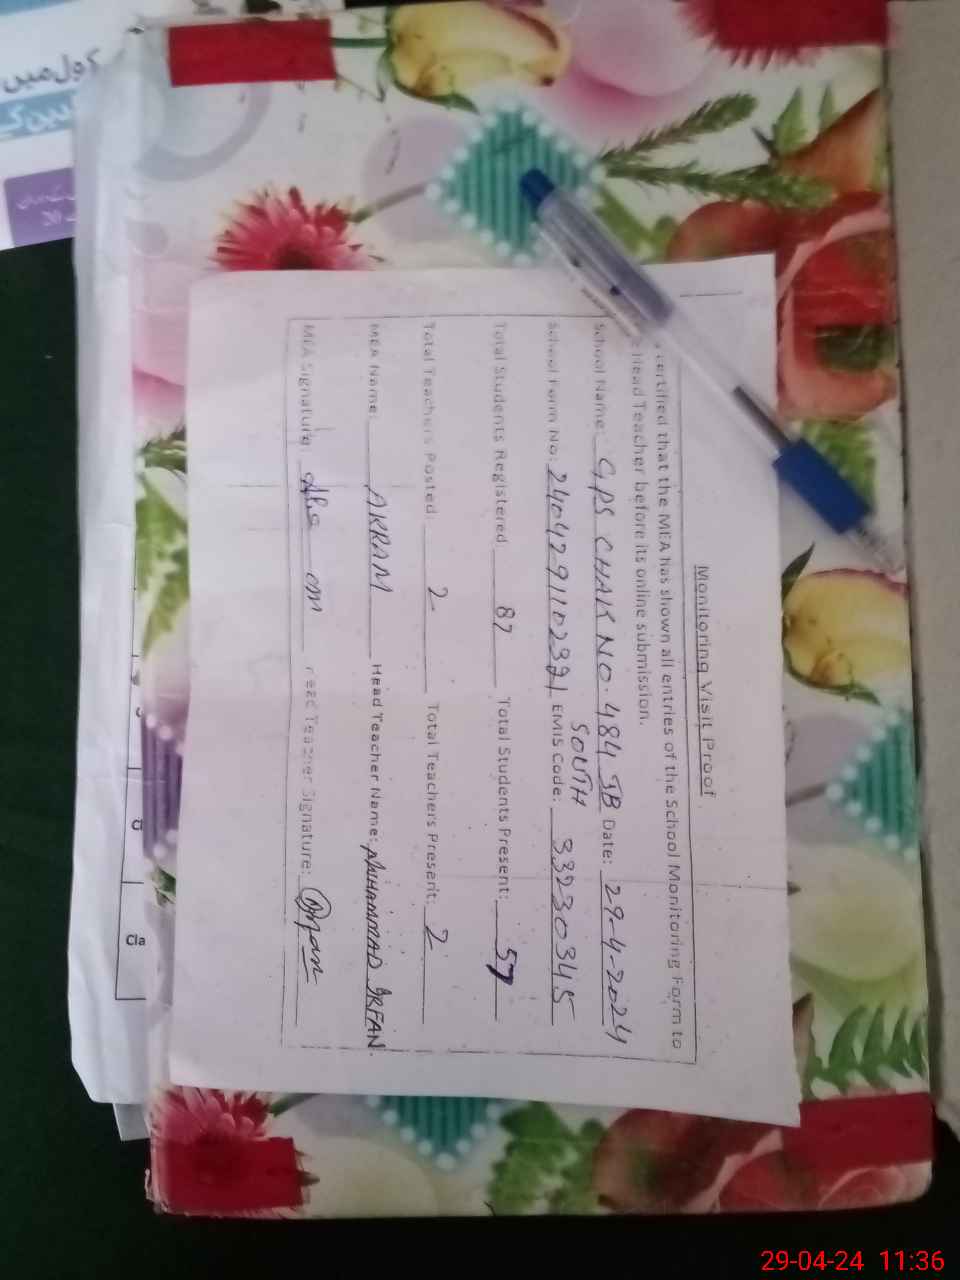 Monitoring Visit Proof
certified that the MEA has shown all entries of the School Monitoring Form to
Head Teacher before its online submission.
School Name: GPS CHAK NO. 484 JB Date: 29-4-2024
SOUTH
School Form No: EMIS Code: 33230345
Total Students Registered: 87 Total Students Present: 57
Total Teachers Posted: 2 Total Teachers Present: 2
MEA Name: AKRAM Head Teacher Name: MUHAMMAD IRFAN.
MEA Signature: Head Teacher Signature:
Cla
29-04-24 11:36